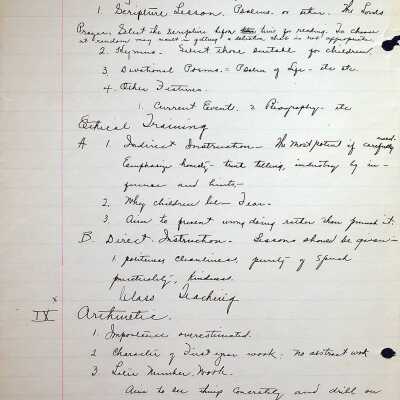 1. Scripture Lesson. Psalms or other. The Lords
Prayer. Select the scripture before time for reading. To choose
at random may result in getting a selection that is not appropriate.
2. Hymns. Select those suitable for children.
3. Devotional Poems. = Psalm of Life - etc etc.
4. Other Features.
1. Current Event. 2 Biography - etc
Ethical Training
A 1. Indirect Instruction - The most potent if carefully used.
Emphasize honesty - truth telling, industry by in-
ference and hints, -
2. Why children lie - Fear.
3. Aim to prevent wrong doing rather than punish it.
B. Direct Instruction. Lessons should be given -
1 politeness cleanliness, purity of speech
punctuality, kindness.
Class Teaching
x
IX Arithmetic.
1. Importance overestimated.
2 Character of First year work: No abstract work
3. Number Work.
Aim to see things concretely and drill on